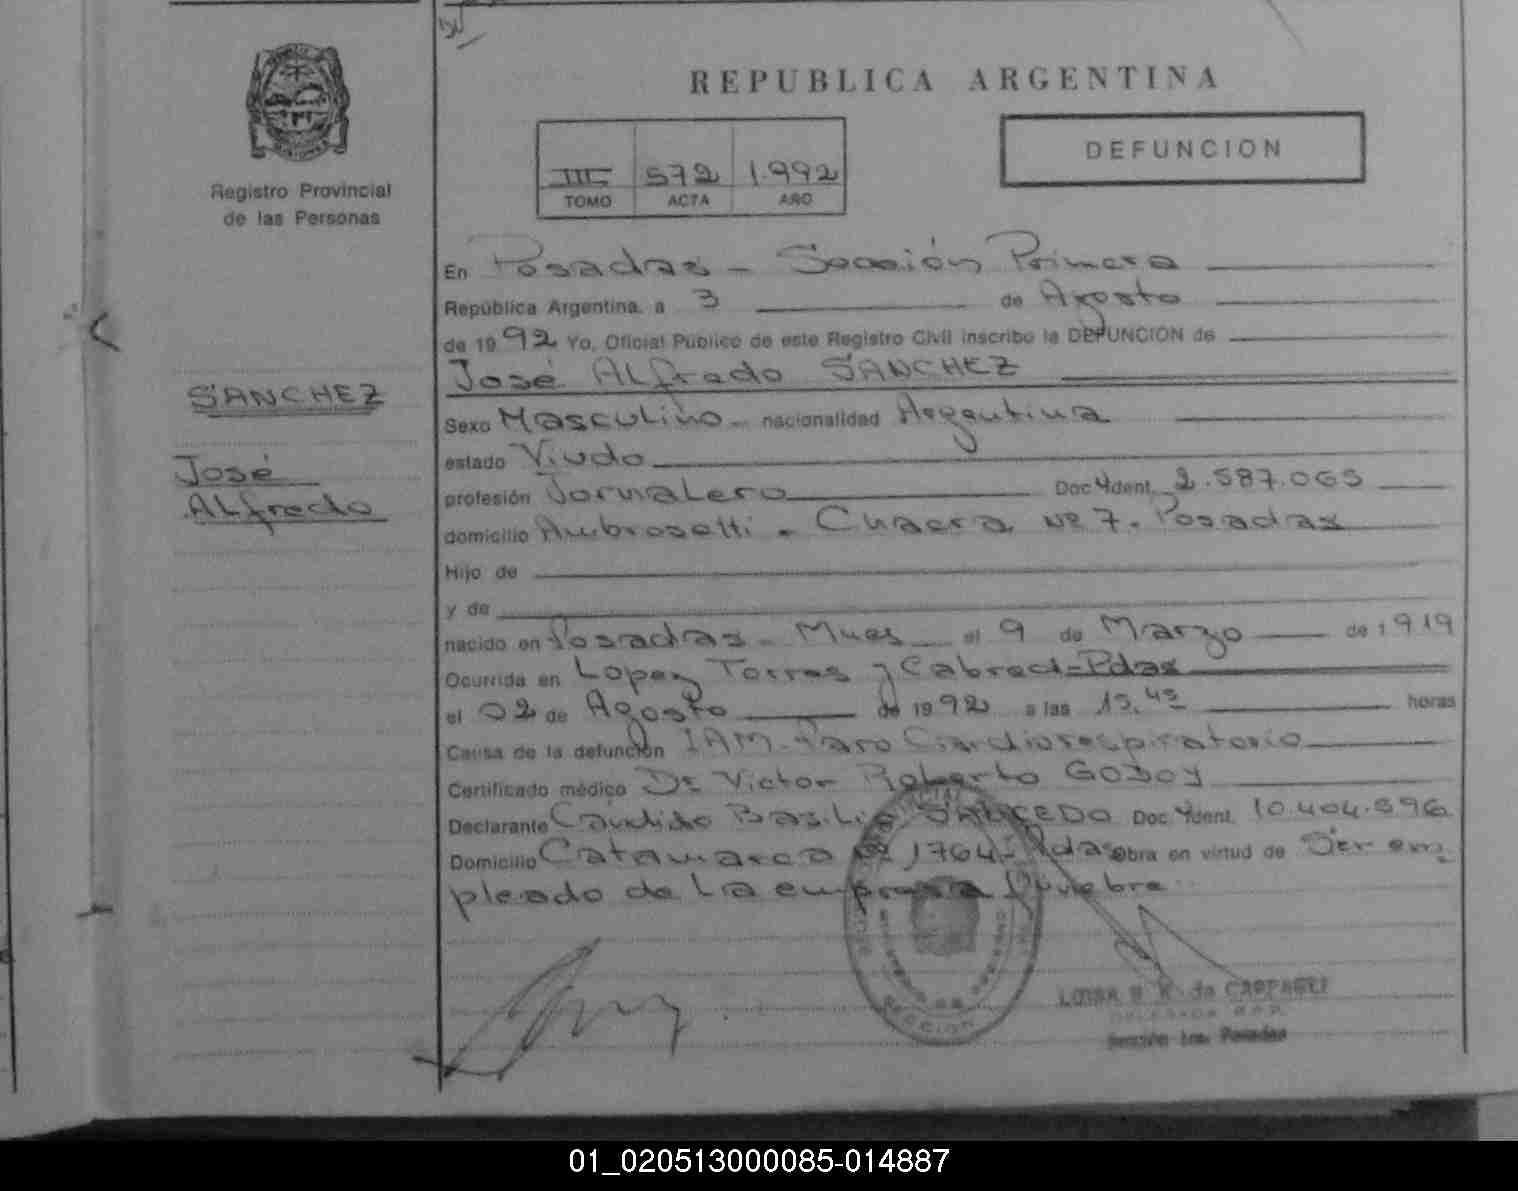 REPUBLICA ARGENTINA
DEFUNCION
III 572 1.992
TOMO ACTA AÑO
Registro Provincial
de las Personas
En Posadas - Sección Primera
República Argentina, a 3 de Agosto
de 1992 Yo, Oficial Público de este Registro Civil inscribo la DEFUNCION de
José Alfredo SANCHEZ
SANCHEZ
José
Alfredo
Sexo Masculino - nacionalidad Argentina
estado Viudo
profesión Jornalero Doc Ydent. 2.587.065
domicilio Ambrosetti - Chacra Nº 7. Posadas
Hijo de
y de
nacido en Posadas - Mnes el 9 de Marzo de 1919
Ocurrida en Lopez Torres y Cabred - Pdas
el 02 de Agosto de 1992 a las 13,45 horas
Causa de la defunción IAM - Paro Cardiorespiratorio
Certificado médico Dr Victor Roberto GODOY
Declarante Cándido Basilio SALCEDO Doc Ydent. 10.404.596
Domicilio Catamarca Nº 1764 - Pdas obra en virtud de Ser em
pleado de la empresa fúnebre
SECCION
LUISA de CAPPAGLI
DELEGADA R.P.P.
Sección 1ra. Posadas
01_020513000085-014887